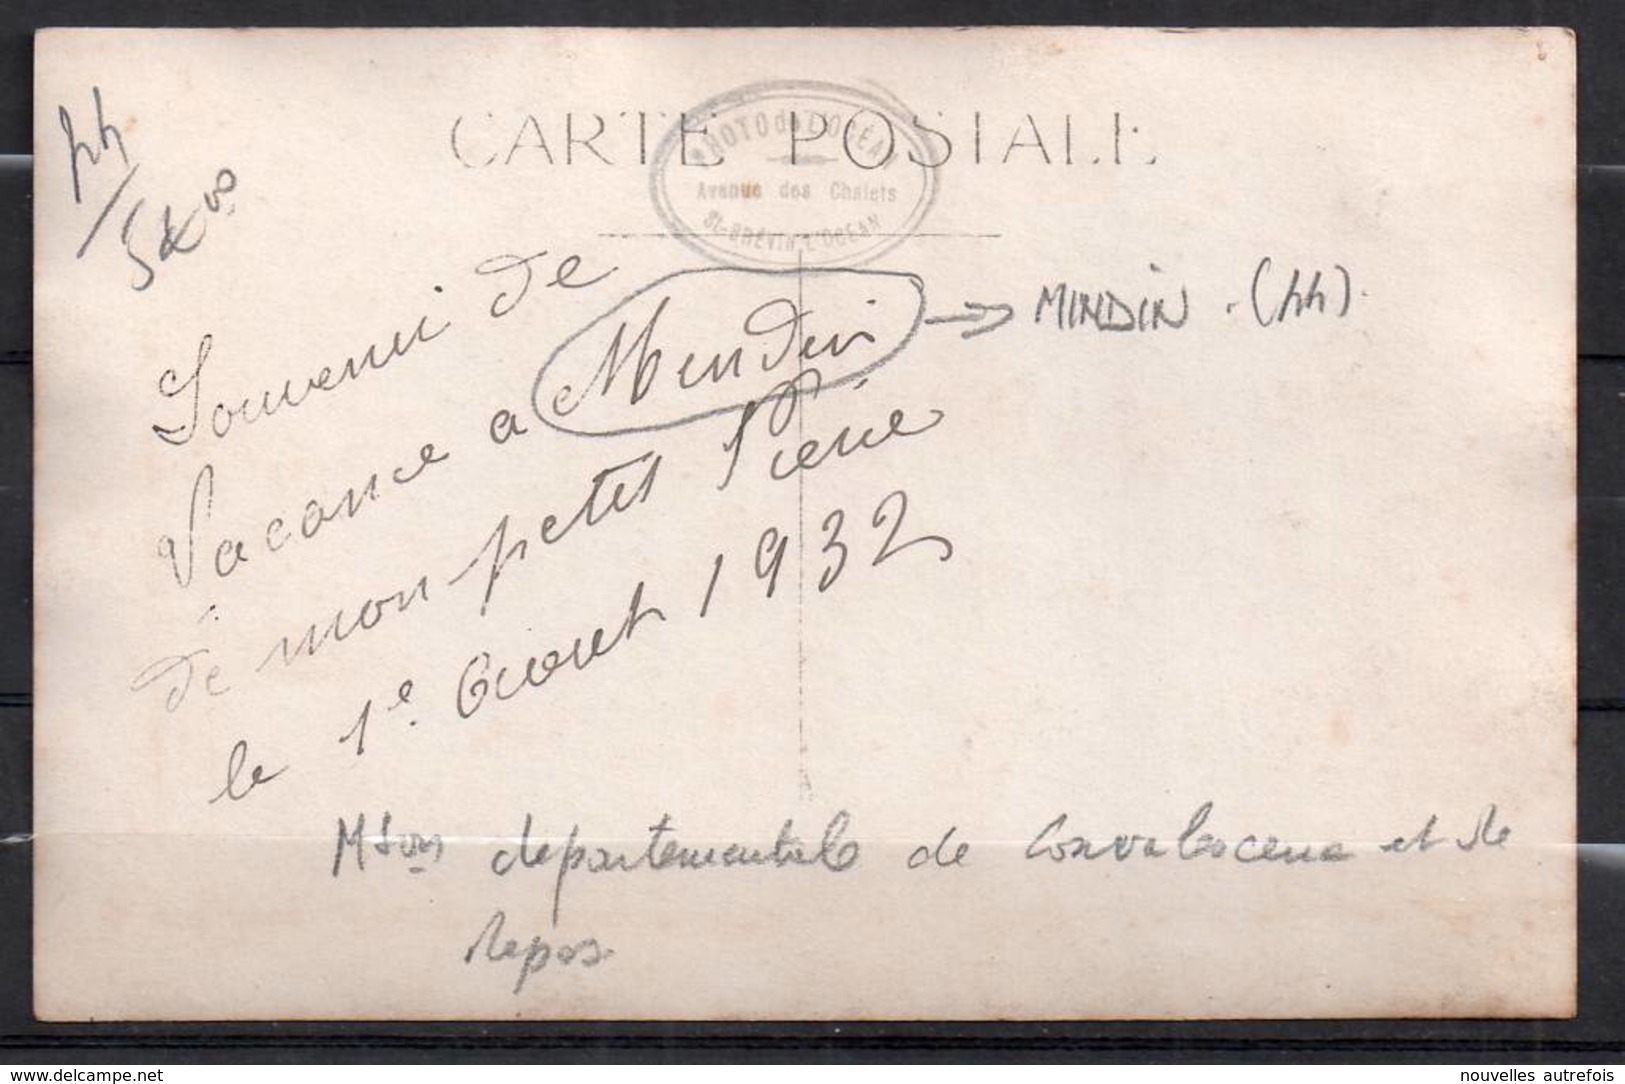 CARTE POSTALE
PHOTO de L'OCÉAN
Avenue des Chalets
St-BRÉVIN L'OCÉAN
44
Souvenir de
Vacance a Mendin → MINDIN. (44).
de mon petit Pierre
le 1e Aout 1932
Mson departementale de Convalescence et de
repos
www.delcampe.net
nouvelles autrefois